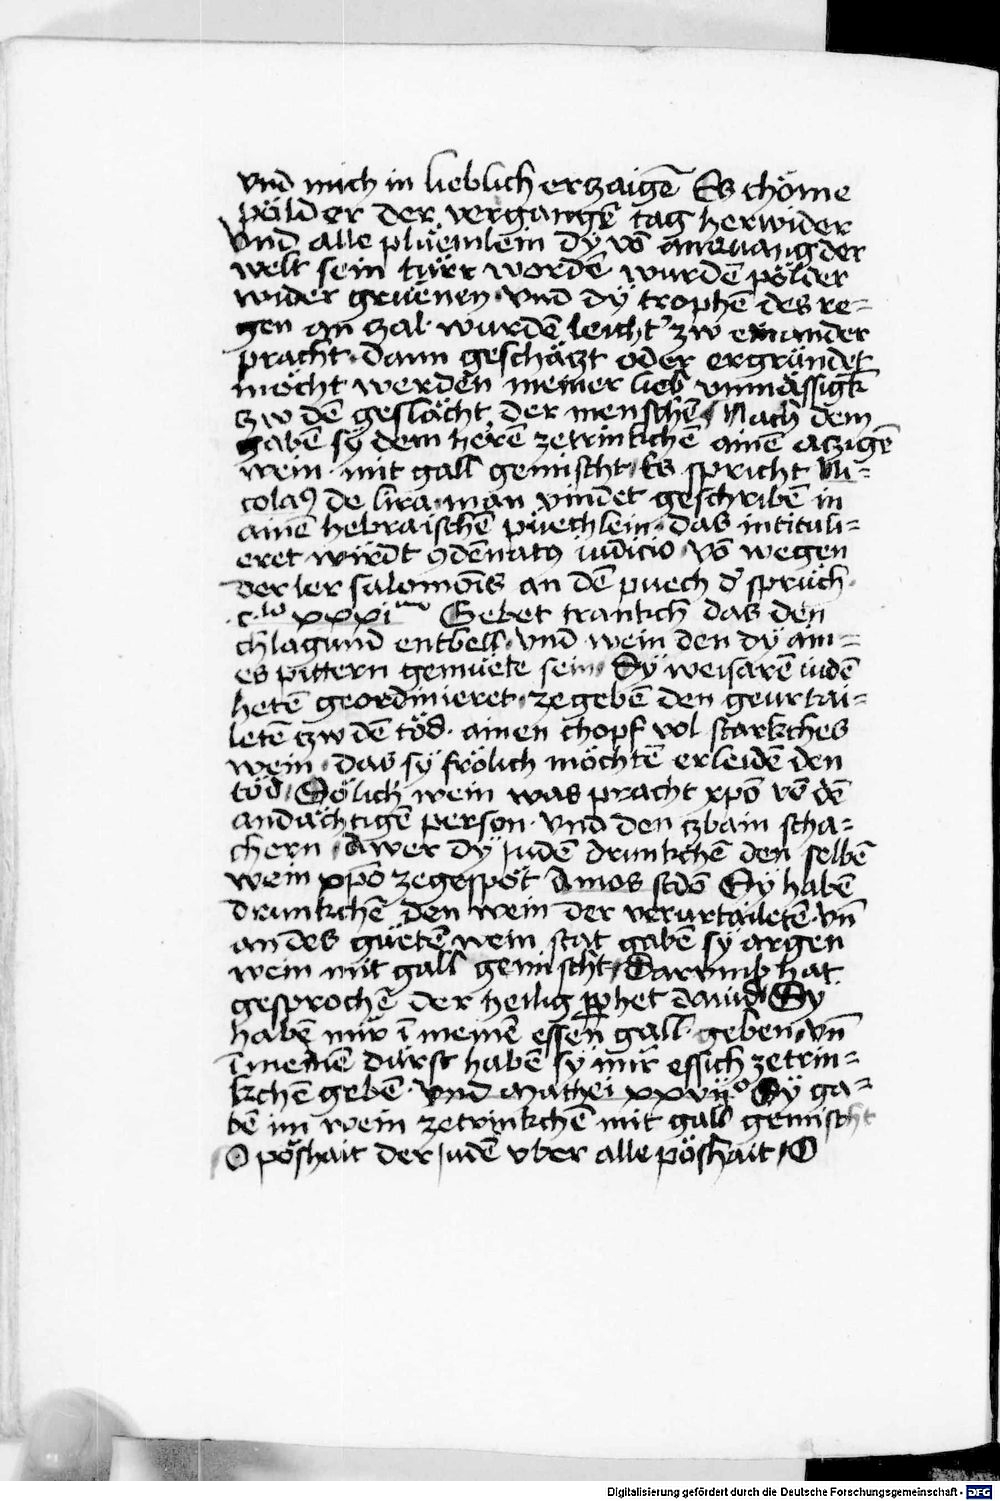 vnd mich in lieblich erzaigē Es chöme
pöld er der vergangē tag herwider
vnd alle plüemlein dÿ vō anevang der
welt sein türr wordē wurdē pölder
wider gruenen · vnd dÿ trophē des re=
gen an zal · wurdē leicht' zw einander
pracht · dann geschäczt oder ergründet
möcht werden meiner lieb vnmässigk
zw dē geslächt der menschē / Nach dem
gabē sÿ dem herrē zetrinkchē ainē aczigē
wein · mit gall gemischt / Es spricht Ni=
colaꝰ de lira · man vindet geschribē in
ainē hebraischē püechlein · das intituli=
eret wirdt ꝯdēnatꝰ iudicio · vō wegen
der ler salomōis an dē puech d' sprüch ·
· c · lo xxxi mo Gebet trankch das den
chlagund entbell · vnd wein den dÿ ain=
es pittern gemüete sein · Dÿ weisarē iudē
hetē geordinieret · zegebē den geurtai=
letē zw dē töd · ainen chopf vol starkches
wein · das sÿ frölich möchtē erleidē den
töd / Sölich wein was pracht xpō vō dē
andächtigē person · vnd den zbain scha=
chern / Awer dÿ Judē drunkchē den selbē
wein xpō zegespöt Amos scdō Sÿ habē
drunkchē den wein der verurtailetē · vn̄
an des güetē wein stat gabē sÿ argen
wein mit gall gemischt / Darvmb hat
gesprochē der heilig ꝓphet dauid / Sy
habē mir ī meinē essen gall · geben · vn̄
ī meinē durst habē sÿ mir essich zetrin=
kchē gebē · Vnd Mathei xxvij° Sÿ ga=
bē im wein zetrinkchē mit gall gemischt
O pöshait der Judē vber alle pöshait / O
Digitalisierung gefördert durch die Deutsche Forschungsgemeinschaft - DFG